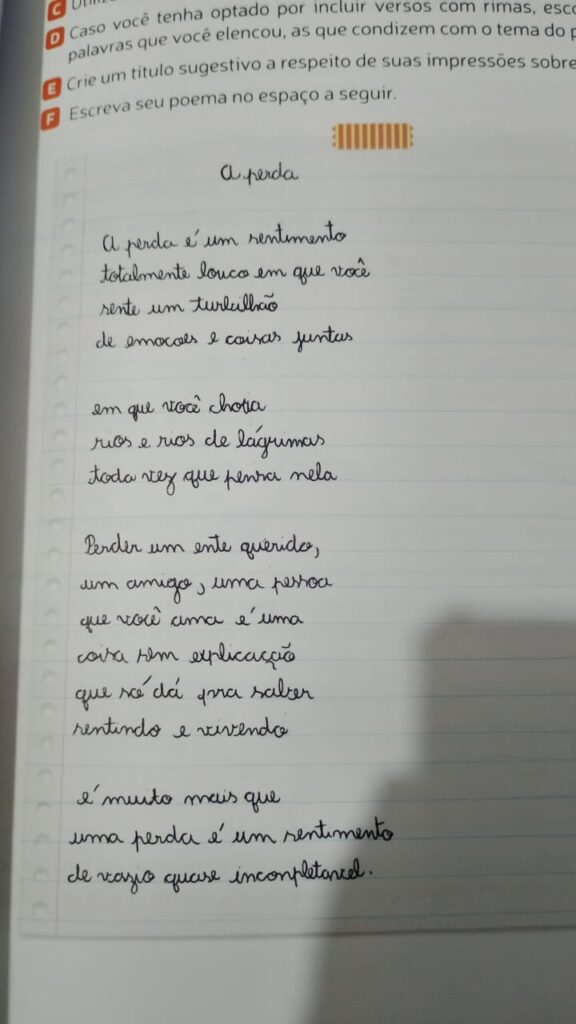 C
D Caso você tenha optado por incluir versos com rimas,
palavras que você elencou, as que condizem com o tema do
E Crie um título sugestivo a respeito de suas impressões sobre
F Escreva seu poema no espaço a seguir.
A perda
A perda é um sentimento
totalmente louco em que você
sente um turbulhão
de emocoes e coisas juntas
em que você chora
rios e rios de lágrimas
toda vez que pensa nela
Perder um ente querido,
um amigo, uma pessoa
que você ama é uma
coisa sem explicacção
que só dá pra saber
sentindo e vivendo
é muito mais que
uma perda é um sentimento
de vazio quase inconpletavel.